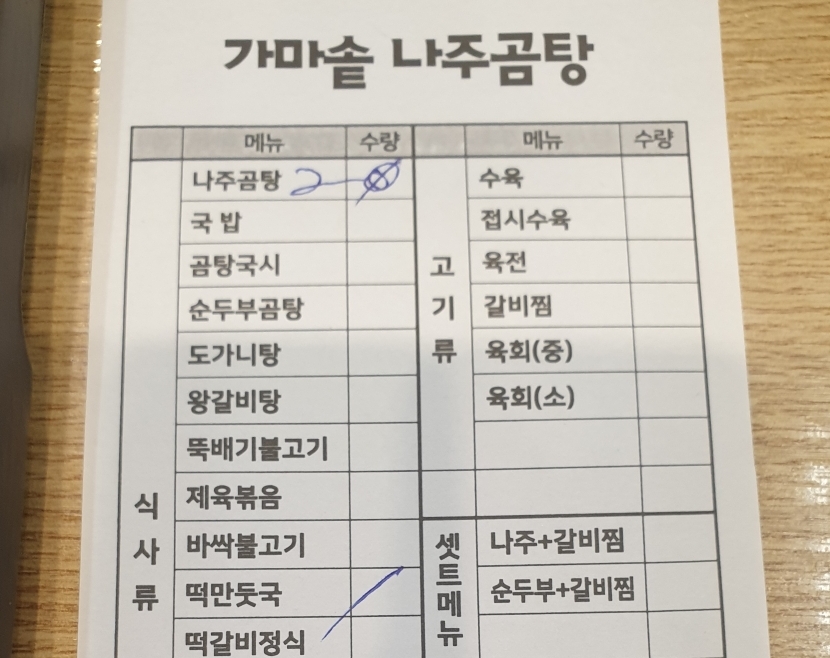 가마솥 나주곰탕
메뉴 수량 메뉴 수량
식사류
나주곰탕 2
국밥
곰탕국시
순두부곰탕
도가니탕
왕갈비탕
뚝배기불고기
제육볶음
바싹불고기
떡만둣국
떡갈비정식
고기류
수육
접시수육
육전
갈비찜
육회(중)
육회(소)
셋트메뉴
나주+갈비찜
순두부+갈비찜